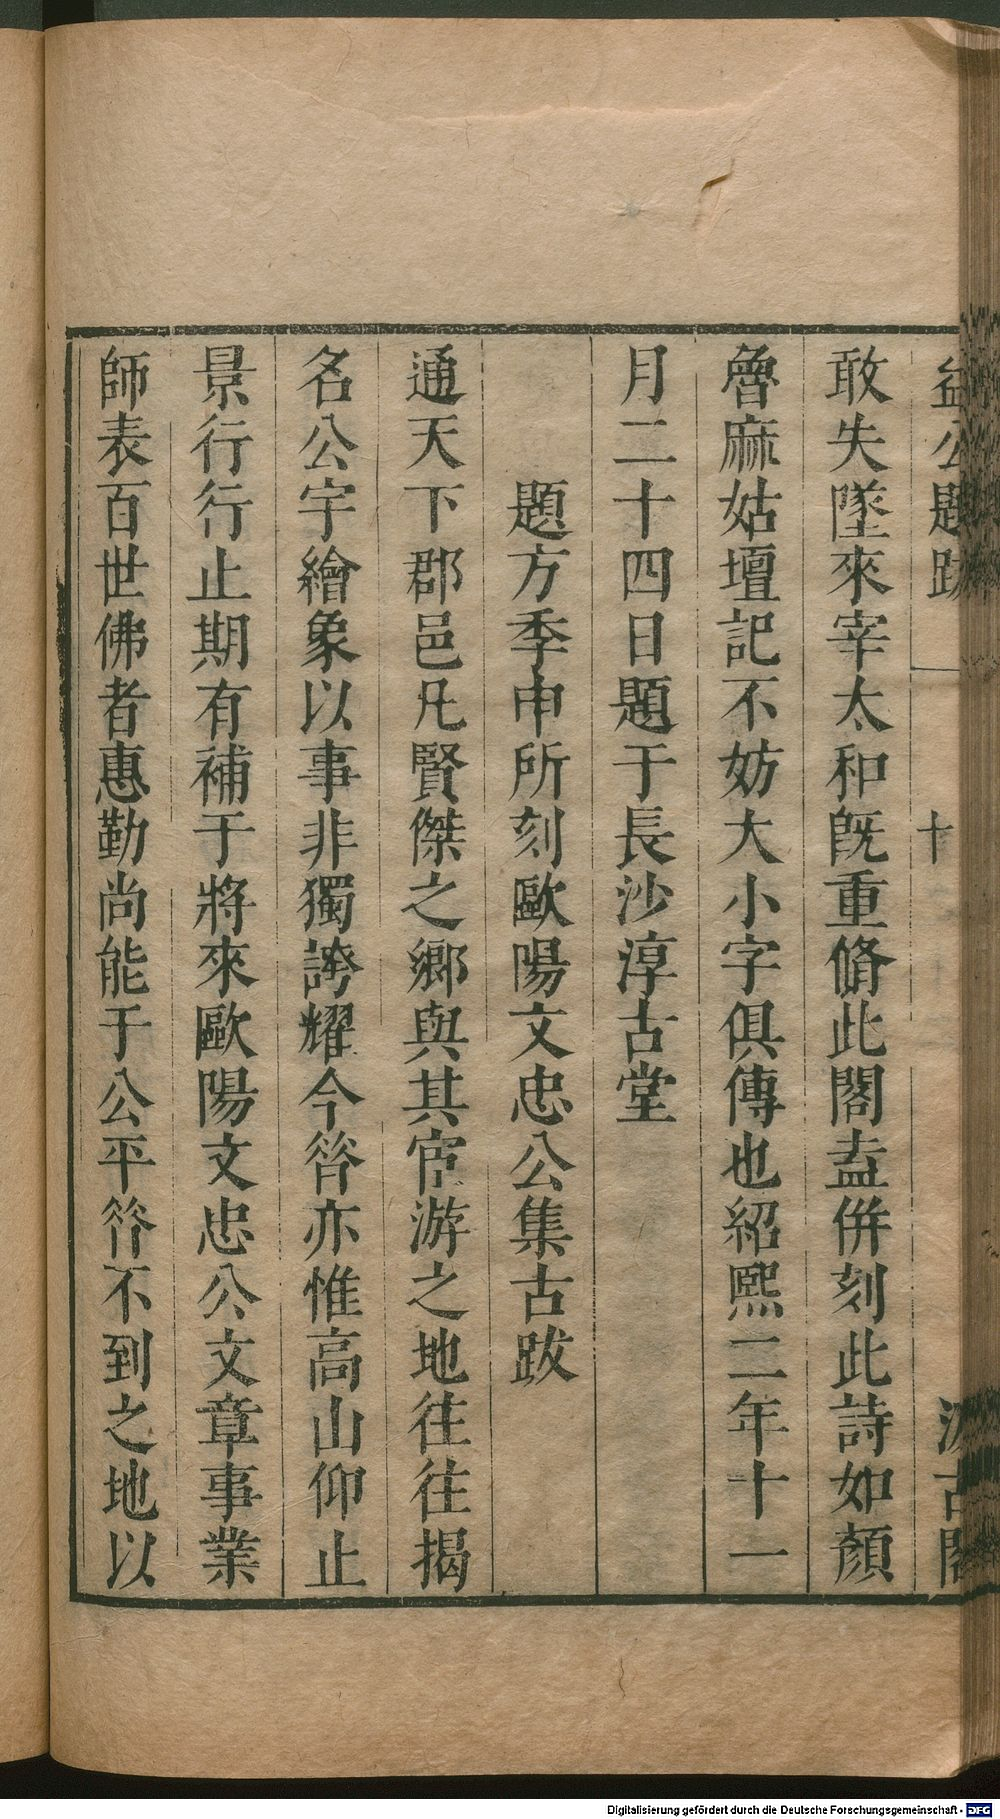 益公題跋 十 汲古閣
敢失墜來宰太和旣重脩此閣盍併刻此詩如顏
魯麻姑壇記不妨大小字俱傳也紹熙二年十一
月二十四日題于長沙淳古堂
題方季申所刻歐陽文忠公集古跋
通天下郡邑凡賢傑之鄉與其宦游之地往往揭
名公宇繪象以事非獨誇耀今昝亦惟高山仰止
景行行止期有補于將來歐陽文忠公文章事業
師表百世佛者惠勤尚能于公平昝不到之地以
Digitalisierung gefördert durch die Deutsche Forschungsgemeinschaft - DFG